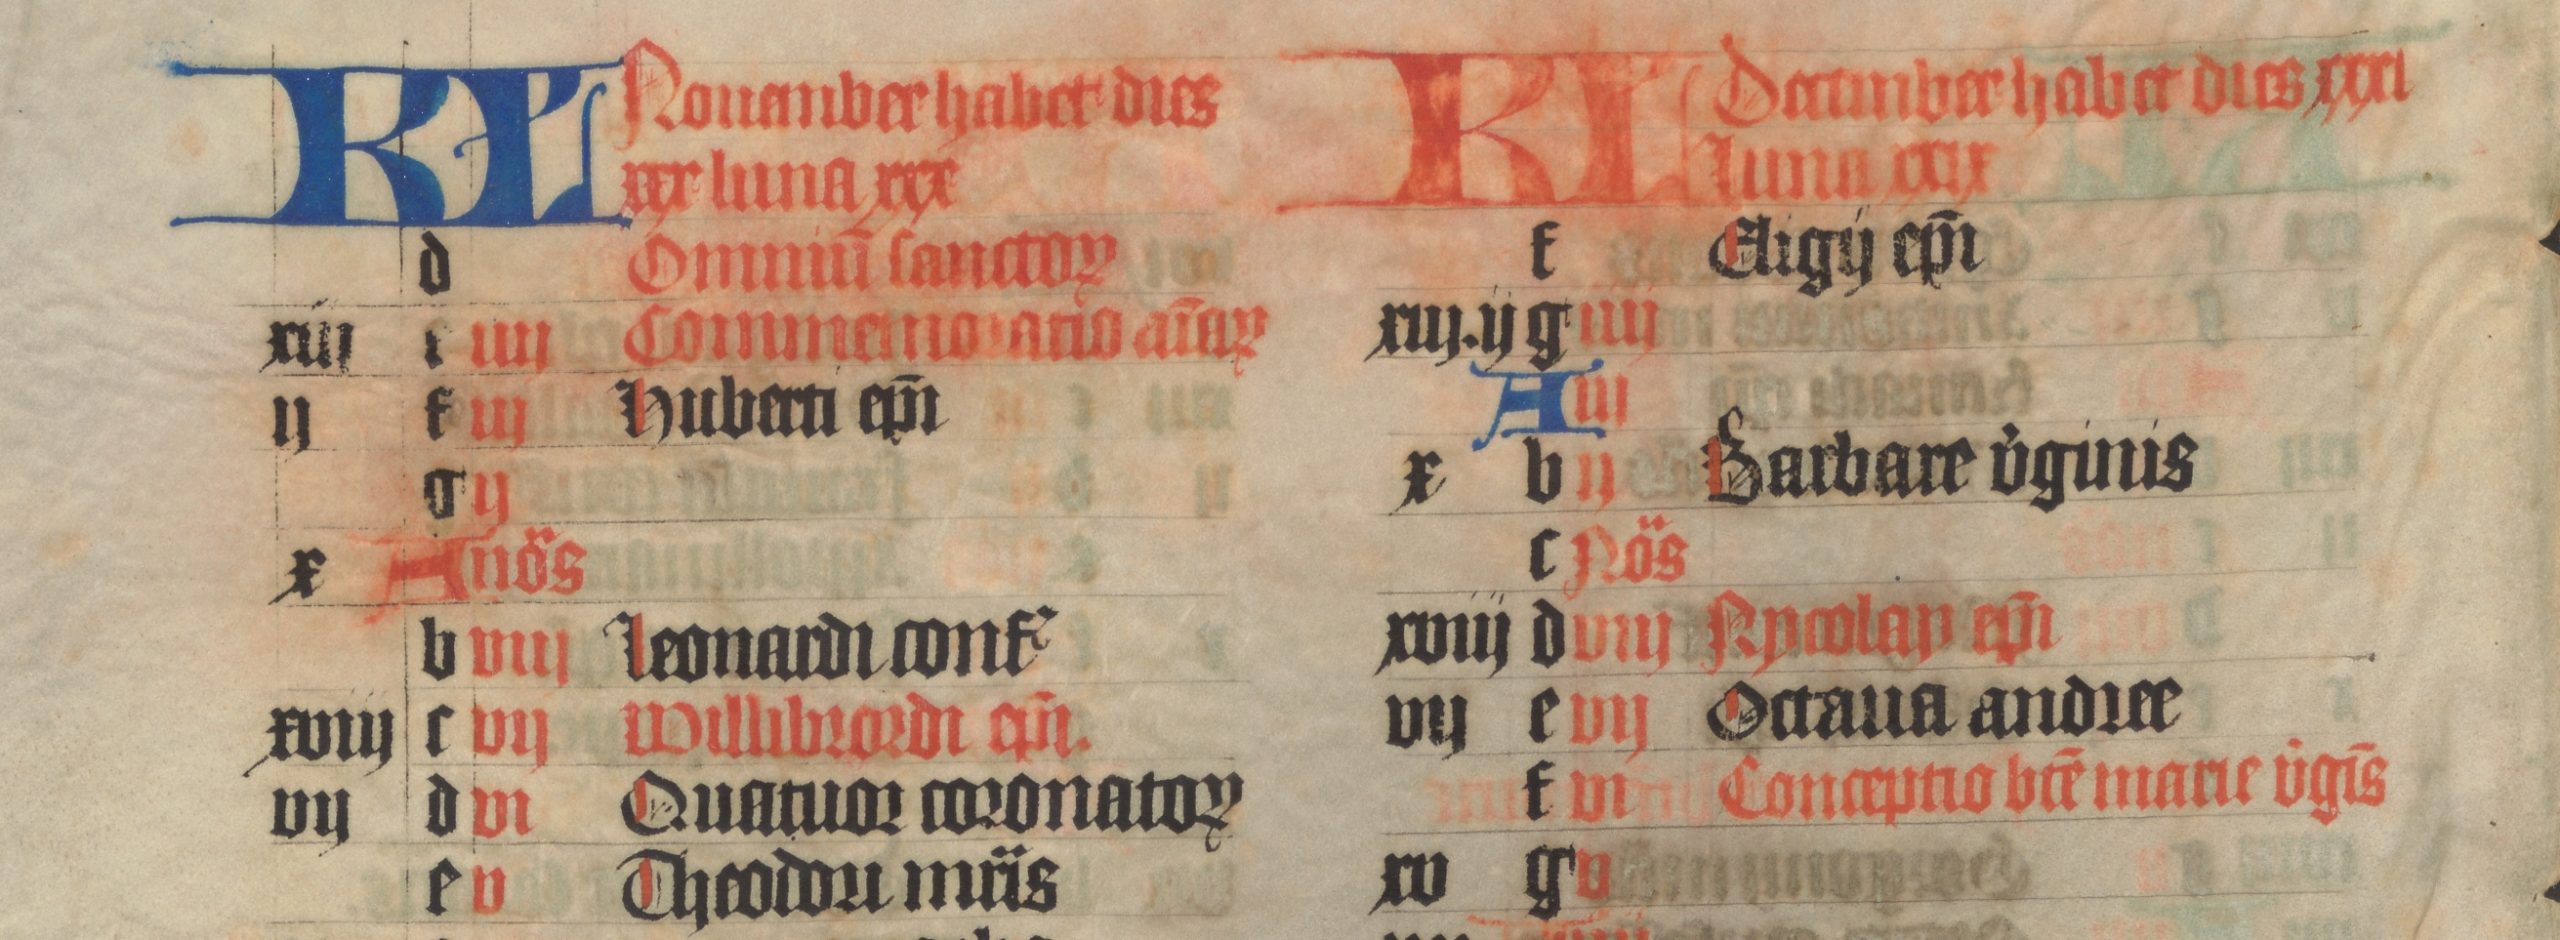 KL Nouember habet dies
xxx luna xxx
d Omniū sanctoꝝ
xiij e iiij Commemoratio aīaꝝ
ij f iij Huberti ep̄i
g ij
x A nōs
b viij Leonardi conf
xviij c vij Willibrordi ep̄i.
vij d vi Quatuor coronatoꝝ
e v Theodori mr̄is
KL December habet dies xxxi
luna xxix
f Eligij ep̄i
xiij.ij g iiij
A iij
x b ij Barbare v̓ginis
c Nōs
xviij d viij Nycolay ep̄i
vij e vij Octaua andree
f vi Conceptio btē marie v̓gīs
xv g v